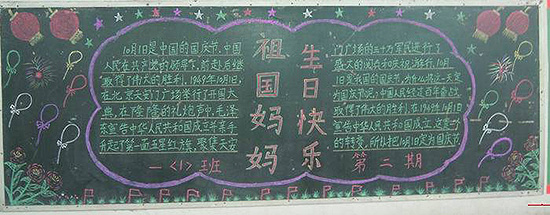 10月1日是中国的国庆节。中国
人民在共产党的领导下,前赴后继
取得了伟大的胜利。1949年10月1日,
在北京天安门广场举行了开国大
典,在隆隆的礼炮声中,毛泽
东宣告中华人民共和国成立并亲手
升起了第一面五星红旗。聚集天安
一〈1〉班
祖国妈妈
生日快乐
门广场的三十万军民进行了
盛大的阅兵和庆祝游行。10月
1日是我国的国庆节,为什么将这一天定
为国庆节呢,中国人民经过百年奋战
取得了伟大的胜利,在1949年10月1日
宣告中华人民共和国成立,这是一个
的转折,所以把10月1日定为国庆节
第二期